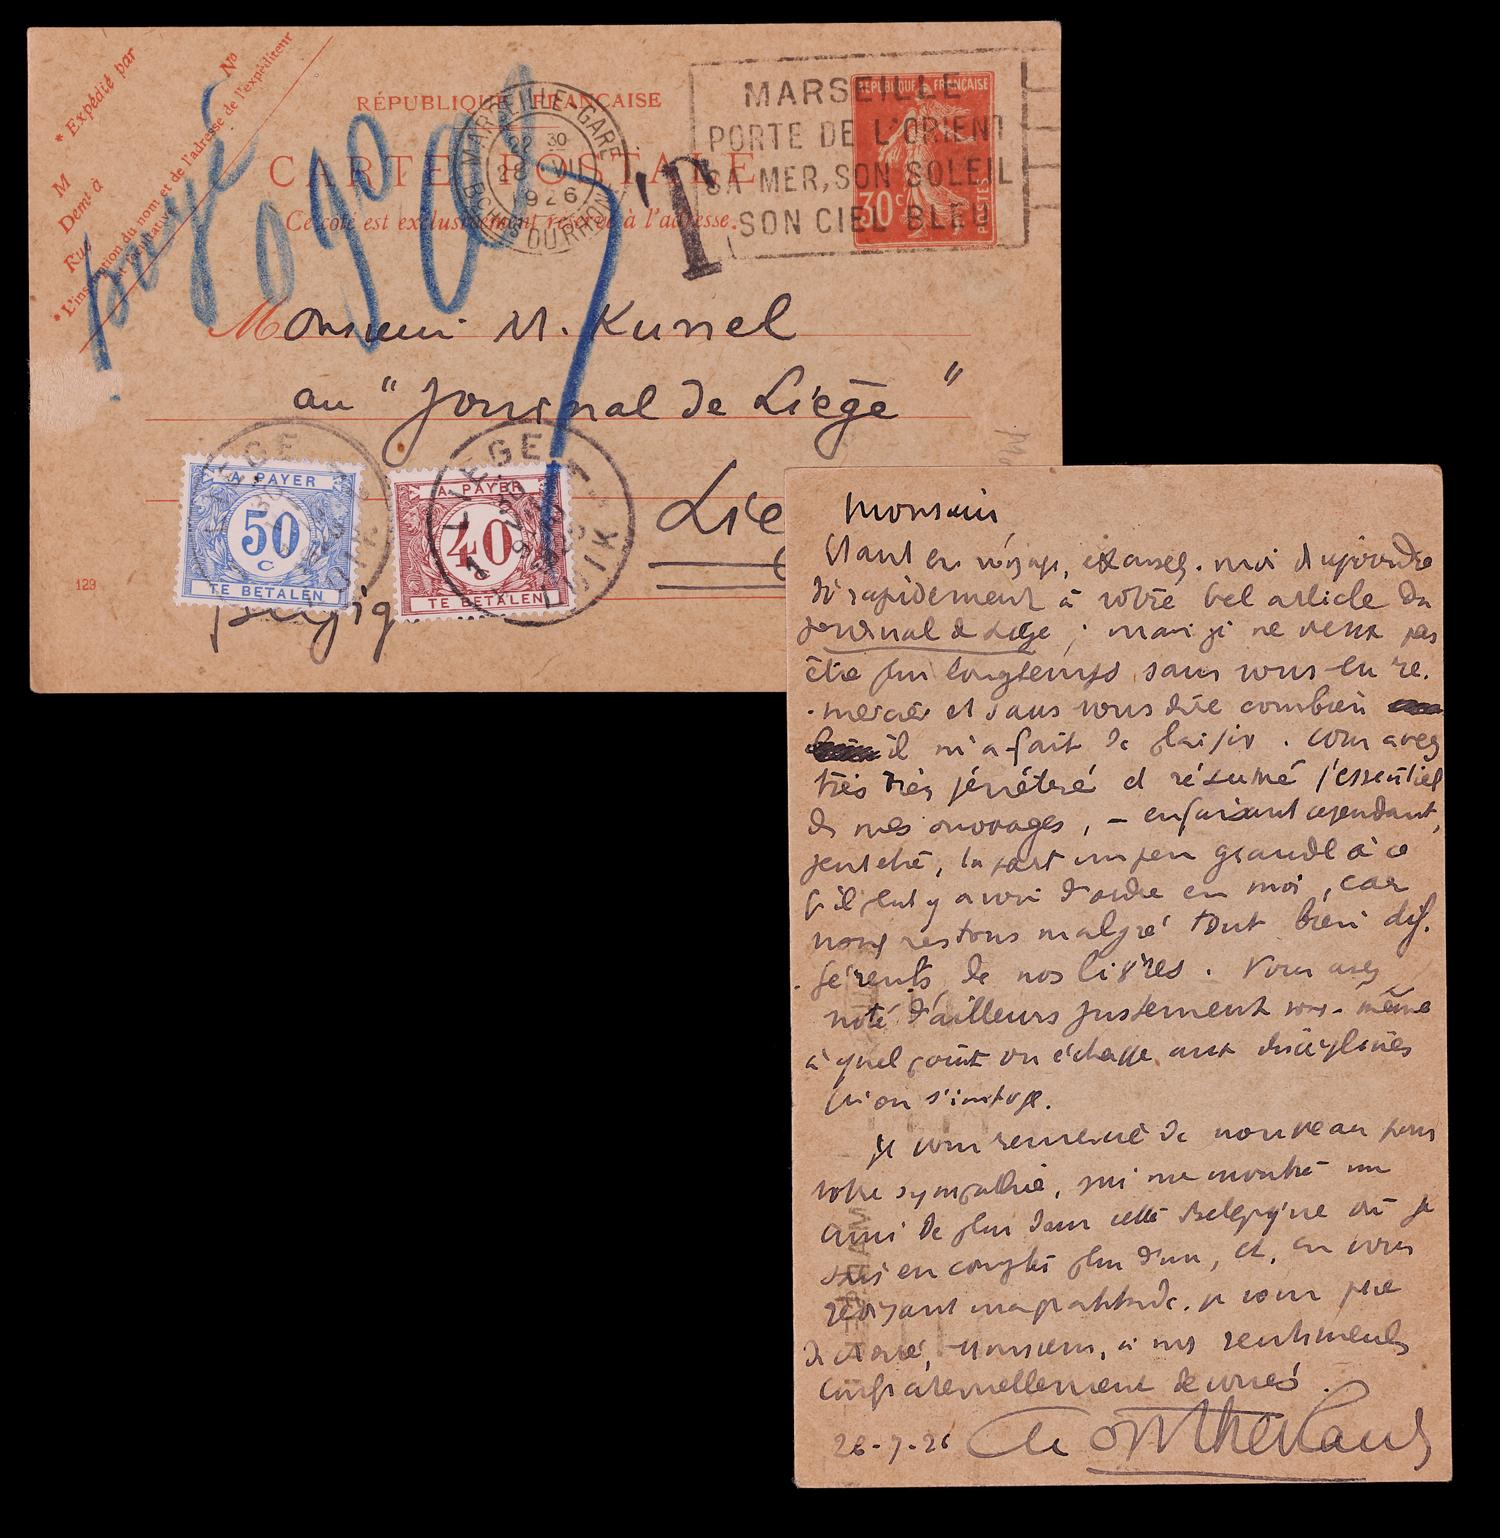 * Expédié par
M
Demt à
Rue
No
* L'inscription du nom et de l'adresse de l'expéditeur
est facultative
RÉPUBLIQUE FRANÇAISE
CARTE POSTALE
Ce côté est exclusivement réservé à l'adresse.
MARSEILLE-GARE
22 30
28 VII
1926
BCHES DU RHÔNE
MARSEILLE
PORTE DE L'ORIENT
SA MER, SON SOLEIL
SON CIEL BLEU
RÉPUBLIQUE FRANÇAISE
30c
POSTES
T
payé 090
Monsieur M. Kunel
au "Journal de Liège"
Liè
LIEGE
LUIK
A PAYER
50
C
TE BETALEN
LIEGE 1
LUIK
A PAYER
40
TE BETALEN
129
Monsieur
Etant en voyage, excusez-moi de répondre
si rapidement à votre bel article du
Journal de Liège ; mais je ne veux pas
être plus longtemps sans vous en re-
-mercier et sans vous dire combien
il m'a fait de plaisir. Vous avez
très très pénétré et résumé l'essentiel
de mes ouvrages, – en faisant cependant,
peut être, la part un peu grande à ce
qu'il peut y avoir d'ordre en moi, car
nous restons malgré tout bien dif-
-férents de nos livres. Vous avez
noté d'ailleurs justement vous-même
à quel point on échappe aux disciplines
qu'on s'impose.
Je vous remercie de nouveau pour
votre sympathie, qui me montre un
ami de plus dans cette Belgique où je
sais en compter plus d'un, et, en vous
redisant ma gratitude, je vous prie
de croire, Monsieur, à mes sentiments
confraternellement dévoués.
28-7-26 Montherlant